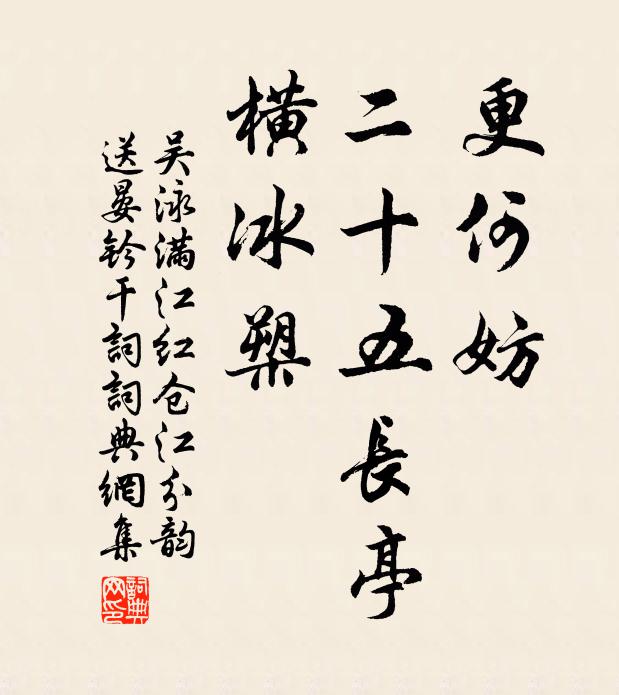 更何妨
二十五長亭
橫冰槊
吴泳满江红仓江分韵
送晏鈐干詞詞典網集
詞典网印